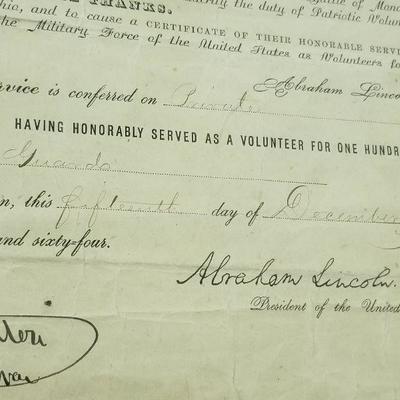 the duty of Patriotic Volun
THANKS.
hio, and to cause a CERTIFICATE OF THEIR HONORABLE SERVI
the Military Force of the United States as Volunteers fo
Abraham Lincol
rvice is conferred on Private
HAVING HONORABLY SERVED AS A VOLUNTEER FOR ONE HUNDR
Guards
n, this fifteenth day of December
and sixty-four.
Abraham Lincoln.
President of the United